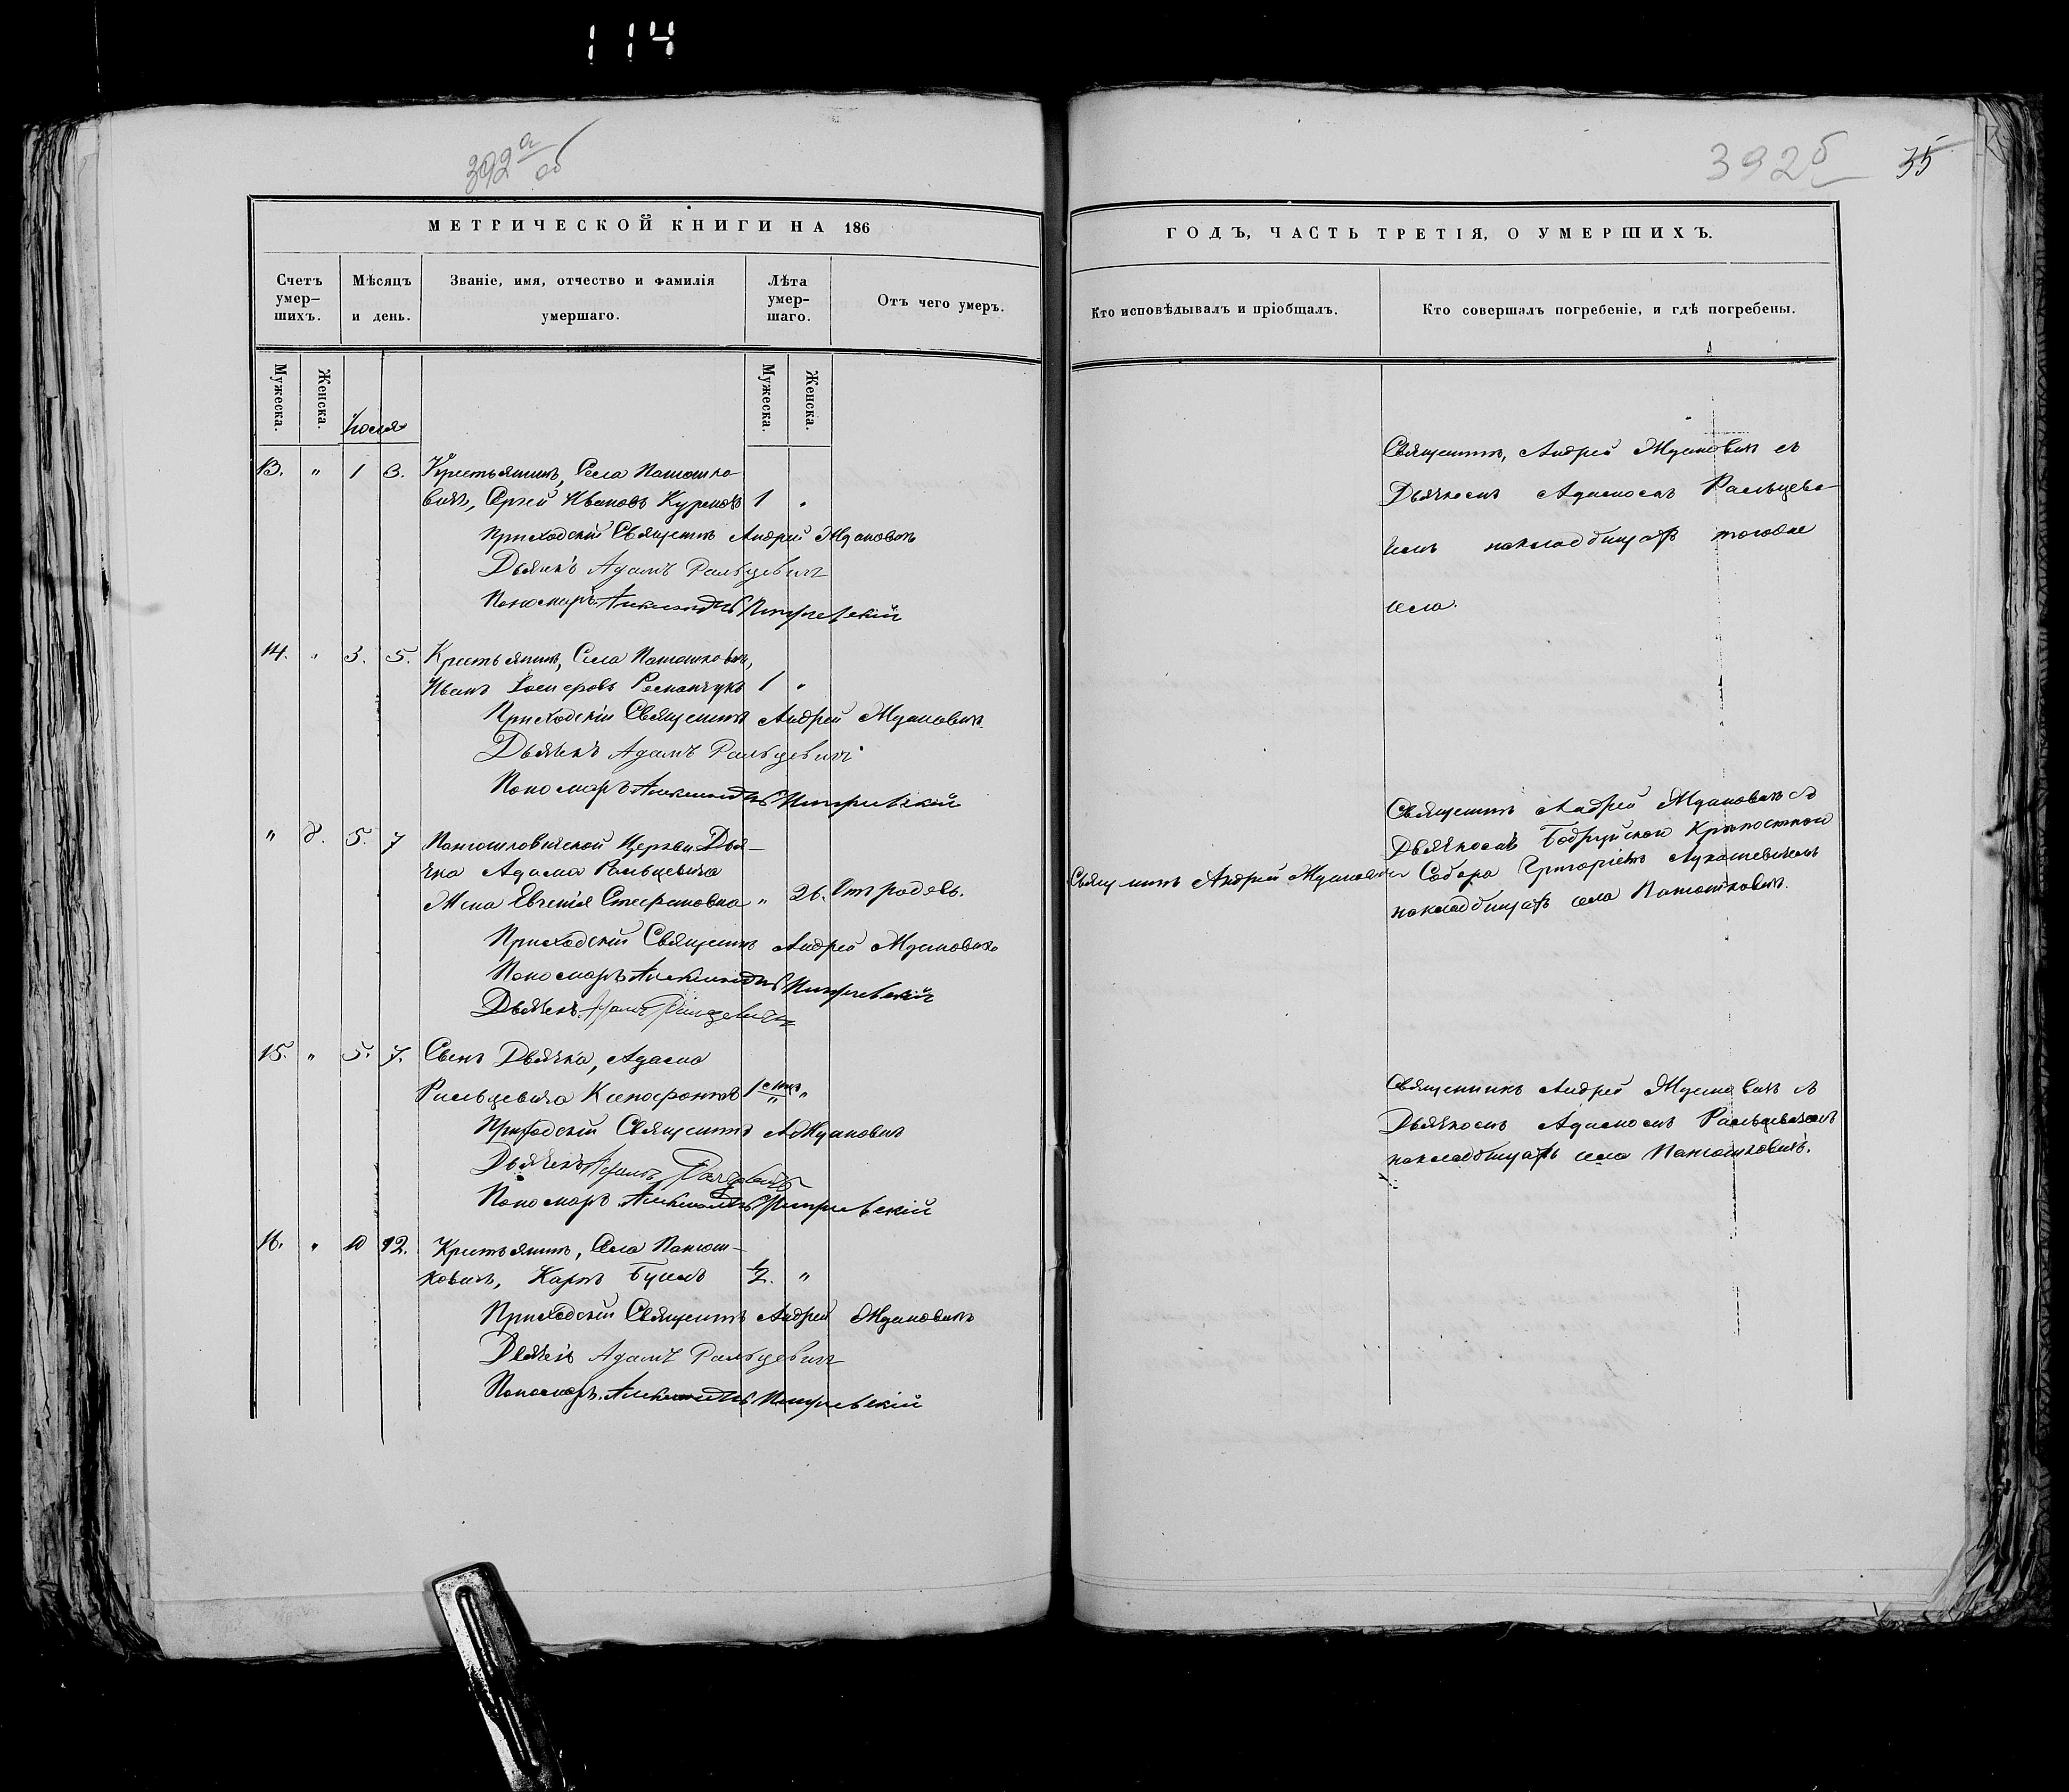 114
392 а/об
392 б
35
МЕТРИЧЕСКОЙ КНИГИ НА 186
Счетъ умер-шихъ.
Мѣсяцъ и день.
Званіе, имя, отчество и фамилія умершаго.
Лѣта умер-шаго.
Отъ чего умеръ.
Мужеска.
Женска.
Мужеска.
Женска.
Іюля
13. " 1 3. Крестьянинъ, Села Панюшко-
вичъ, Сергей Ивановъ 1 "
Приходскій Священникъ Андрей Ждановичъ
Дьячекъ Адамъ Ральцевичъ
Пономарь Александръ
14. " 3. 5. Крестьянинъ, Села Панюшковичъ,
Иванъ Романчукъ 1 "
Приходскій Священникъ Андрей Ждановичъ
Дьячекъ Адамъ Ральцевичъ
Пономарь Александръ
" 8. 5. 7 Панюшковичской Церкви Дья-
чка Адама Ральцевича
Жена Евгенія Стефановна " 26. Отъ родовъ.
Приходскій Священникъ Андрей Ждановичъ
Пономарь Александръ
Дьячекъ Адамъ Ральцевичъ
15. " 5. 7. Сынъ Дьячка, Адама
Ральцевича Ксенофонтъ 1 "
Приходскій Священникъ А Ждановичъ
Дьячекъ Адамъ Ральцевичъ
Пономарь Александръ
16. " 10 12. Крестьянинъ, Села Панюш-
ковичъ, Карпъ 1/2. "
Приходскій Священникъ Андрей Ждановичъ
Дьячекъ Адамъ Ральцевичъ
Пономарь Александръ
ГОДЪ, ЧАСТЬ ТРЕТІЯ, О УМЕРШИХЪ.
Кто исповѣдывалъ и пріобщалъ.
Кто совершалъ погребеніе, и гдѣ погребены.
Священникъ, Андрей Ждановичъ съ
Дьячкомъ Адамомъ Ральцеви-
чемъ на кладбищѣ тогоже
села.
Священникъ Андрей Ждановичъ
Священникъ Андрей Ждановичъ съ
Дьячкомъ Бобруйской Крѣпостной
Собора Григоріемъ Лукашевичемъ
на кладбищѣ села Панюшковичъ.
Священникъ Андрей Ждановичъ съ
Дьячкомъ Адамомъ Ральцевичемъ
на кладбищѣ села Панюшковичъ.